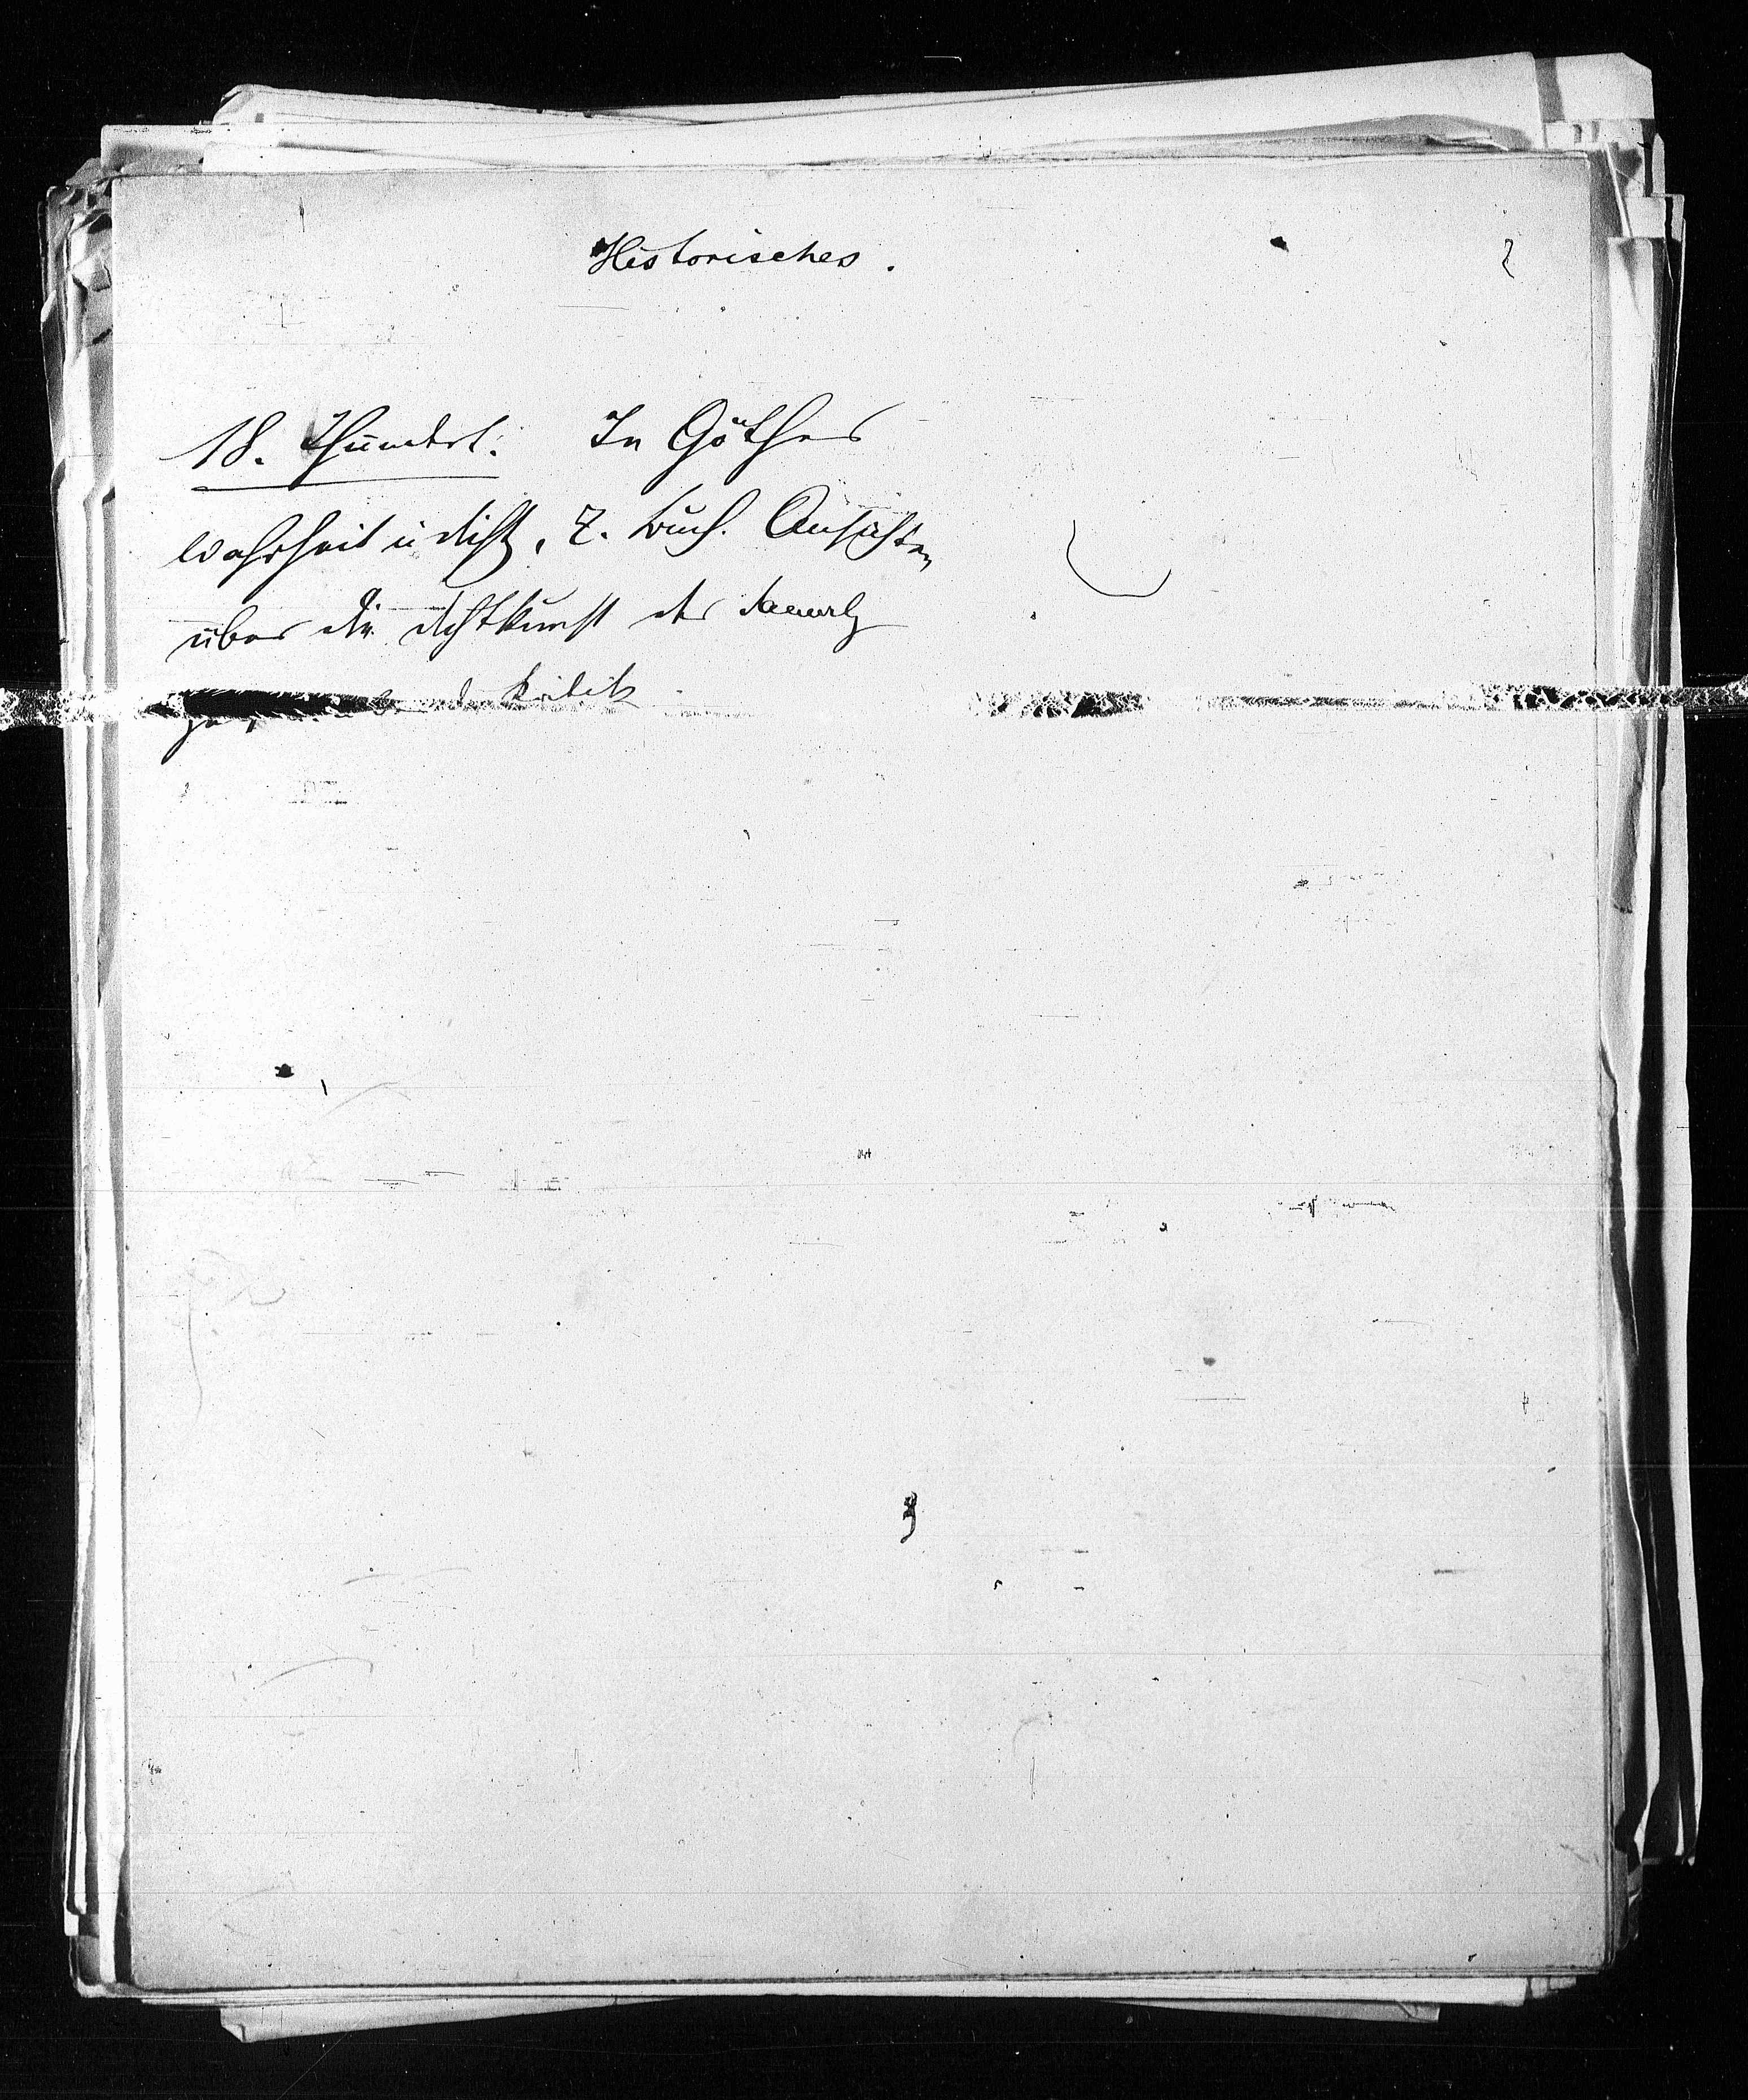 Historisches.
18. Jhundrt. In Göthes
Wahrheit u dicht. 7. Buch. Ansichten
über die dichtkunst der
Kritik